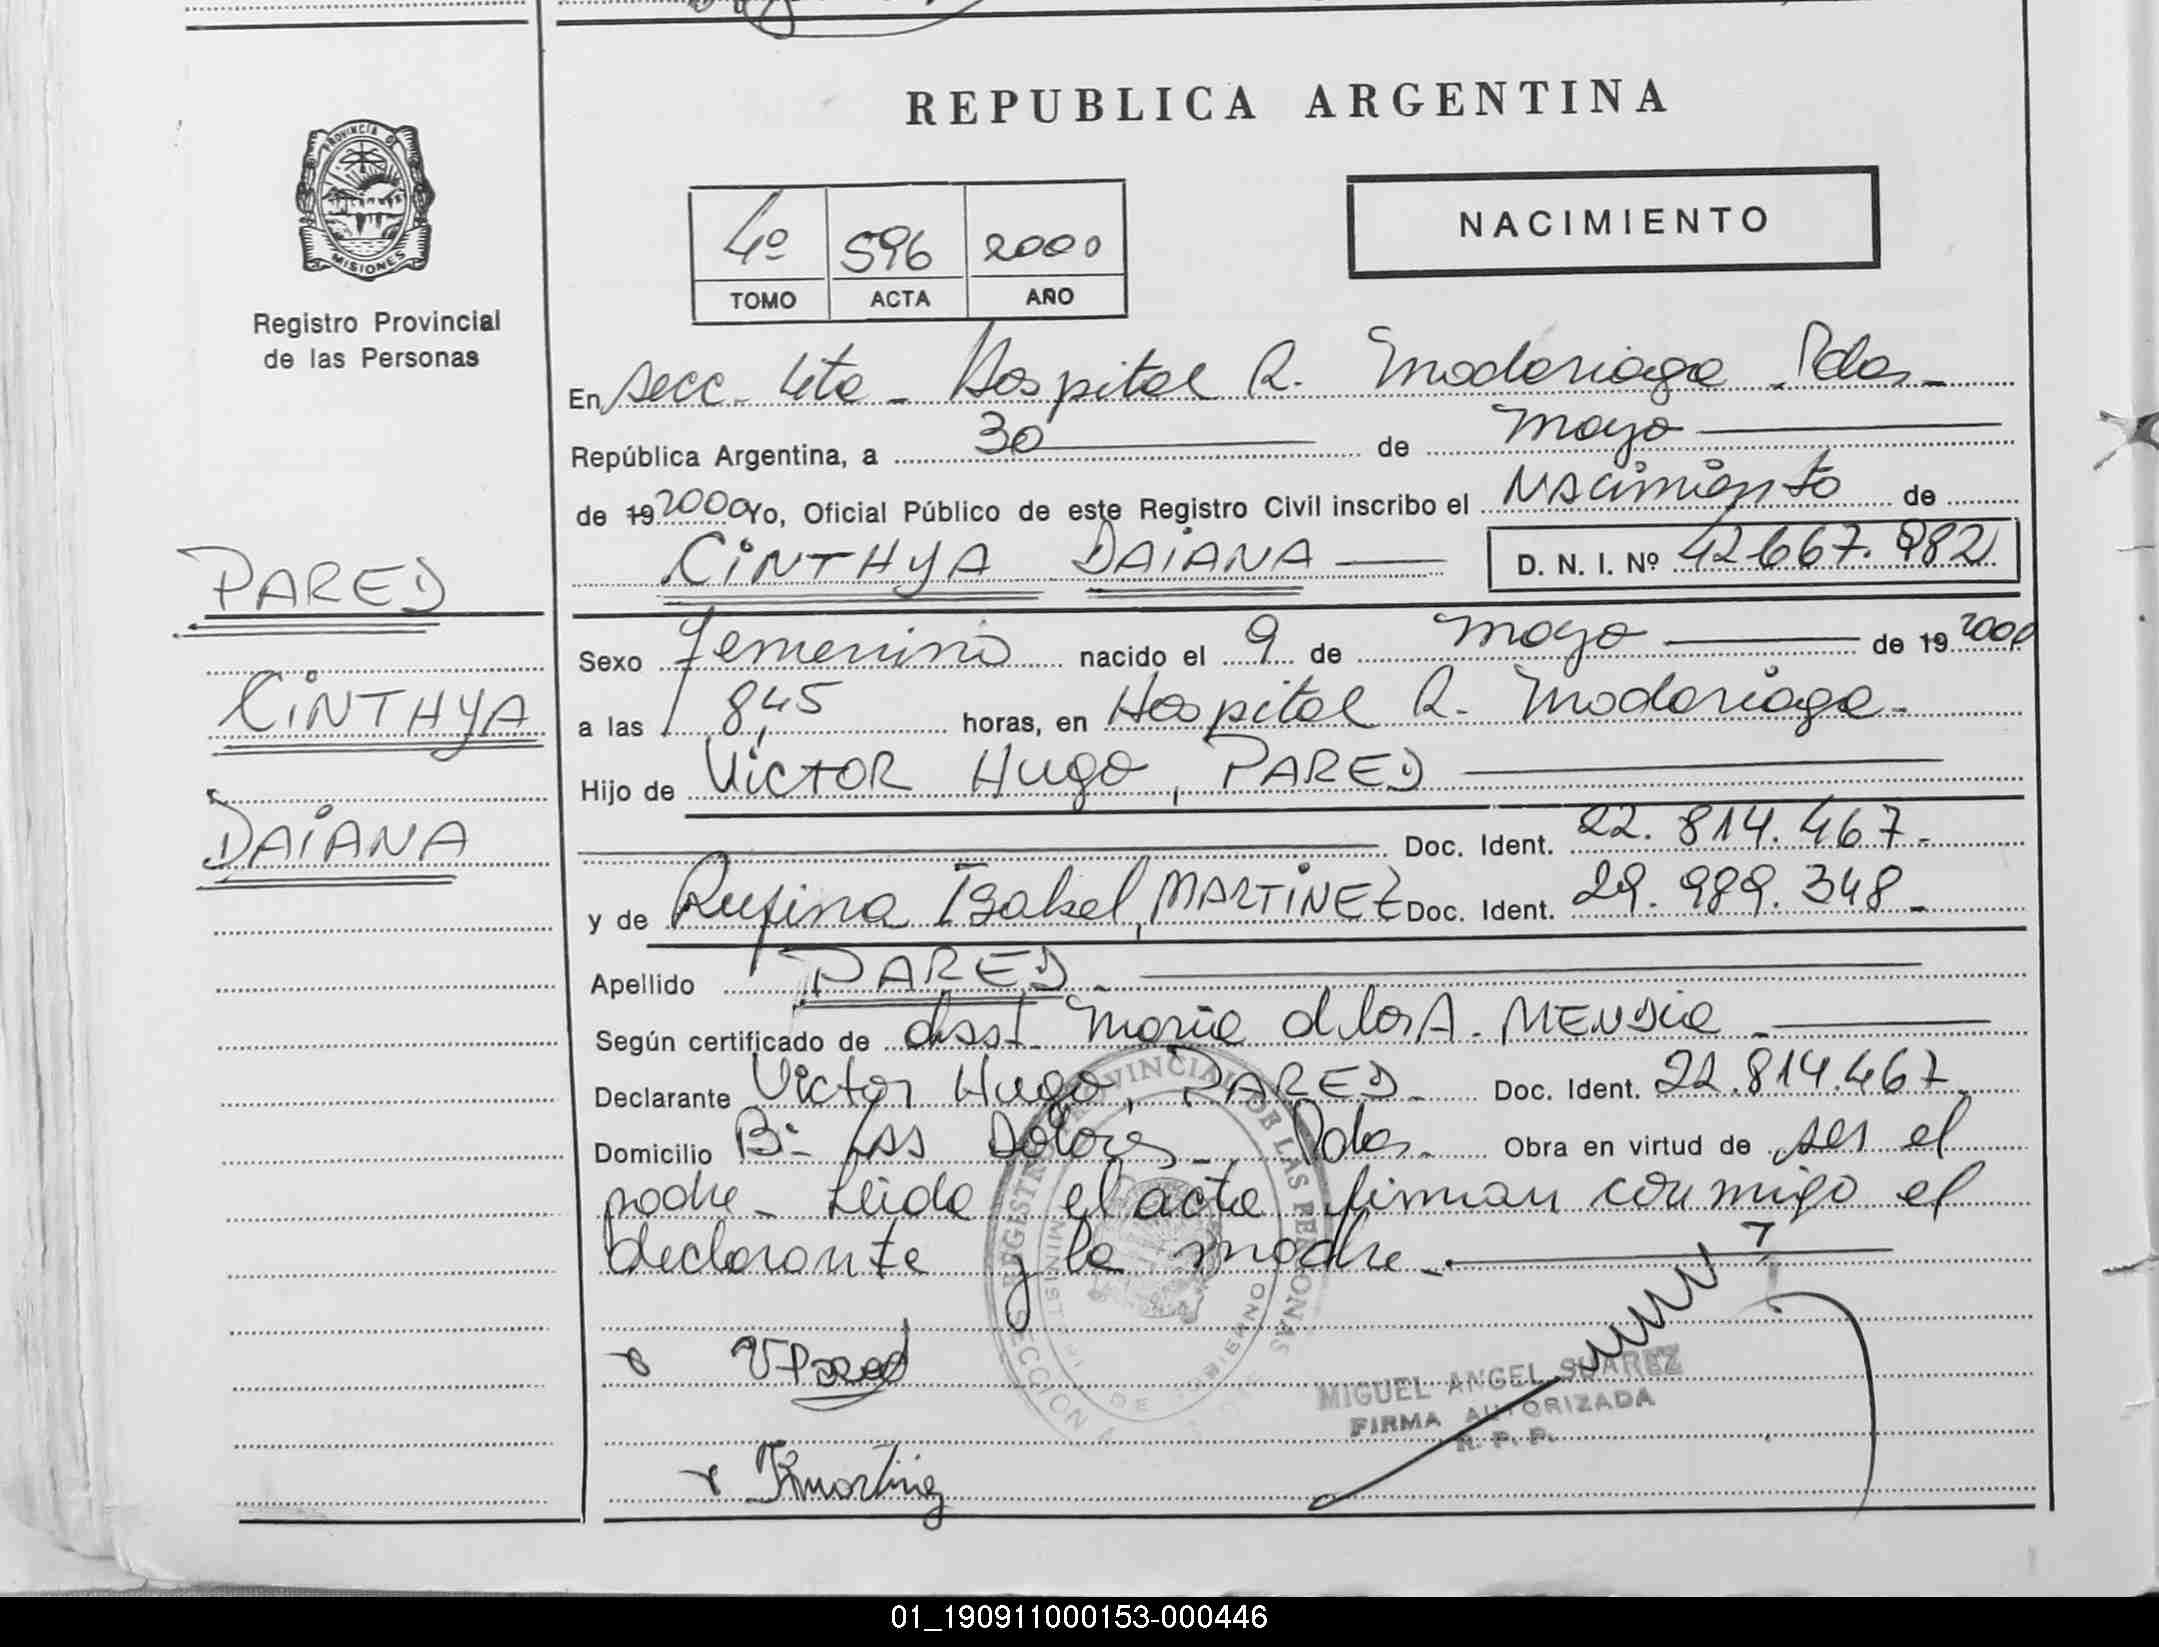 REPUBLICA ARGENTINA
PROVINCIA DE
MISIONES
Registro Provincial
de las Personas
4º 596 2000
TOMO ACTA AÑO
NACIMIENTO
En secc. 4ta - Hospital R. Madariaga - Pdas -
República Argentina, a 30 de mayo
de 19 2000 Yo, Oficial Público de este Registro Civil inscribo el Nacimiento de
CINTHYA DAIANA D. N. I. Nº 42667.982
PARED
CINTHYA
DAIANA
Sexo femenino nacido el 9 de mayo de 19 2000
a las 8,45 horas, en Hospital R. Madariaga -
Hijo de Victor Hugo, PARED
Doc. Ident. 22.814.467.-
y de Rufina Isabel, MARTINEZ Doc. Ident. 29.989.348-
Apellido PARED.-
Según certificado de María d los A. MENDIE -
Declarante Victor Hugo, PARED - Doc. Ident. 22.814.467
Domicilio Bº Los Dolores - Pdas - Obra en virtud de ser el
padre - Leida el acta firman conmigo el
declarante y la madre -
VPared
MIGUEL ANGEL SUAREZ
FIRMA AUTORIZADA
R. P. P.
01_190911000153-000446